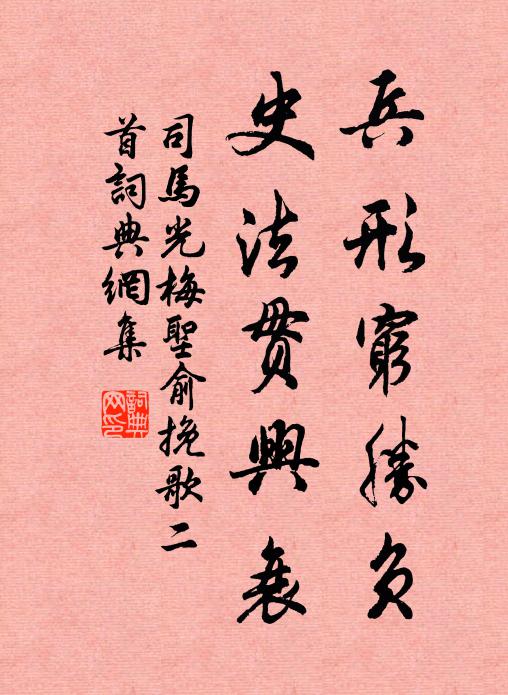 兵形窮勝負
史法貫興衰
司馬光梅聖俞挽歌二
首詞典網集
詞典網印